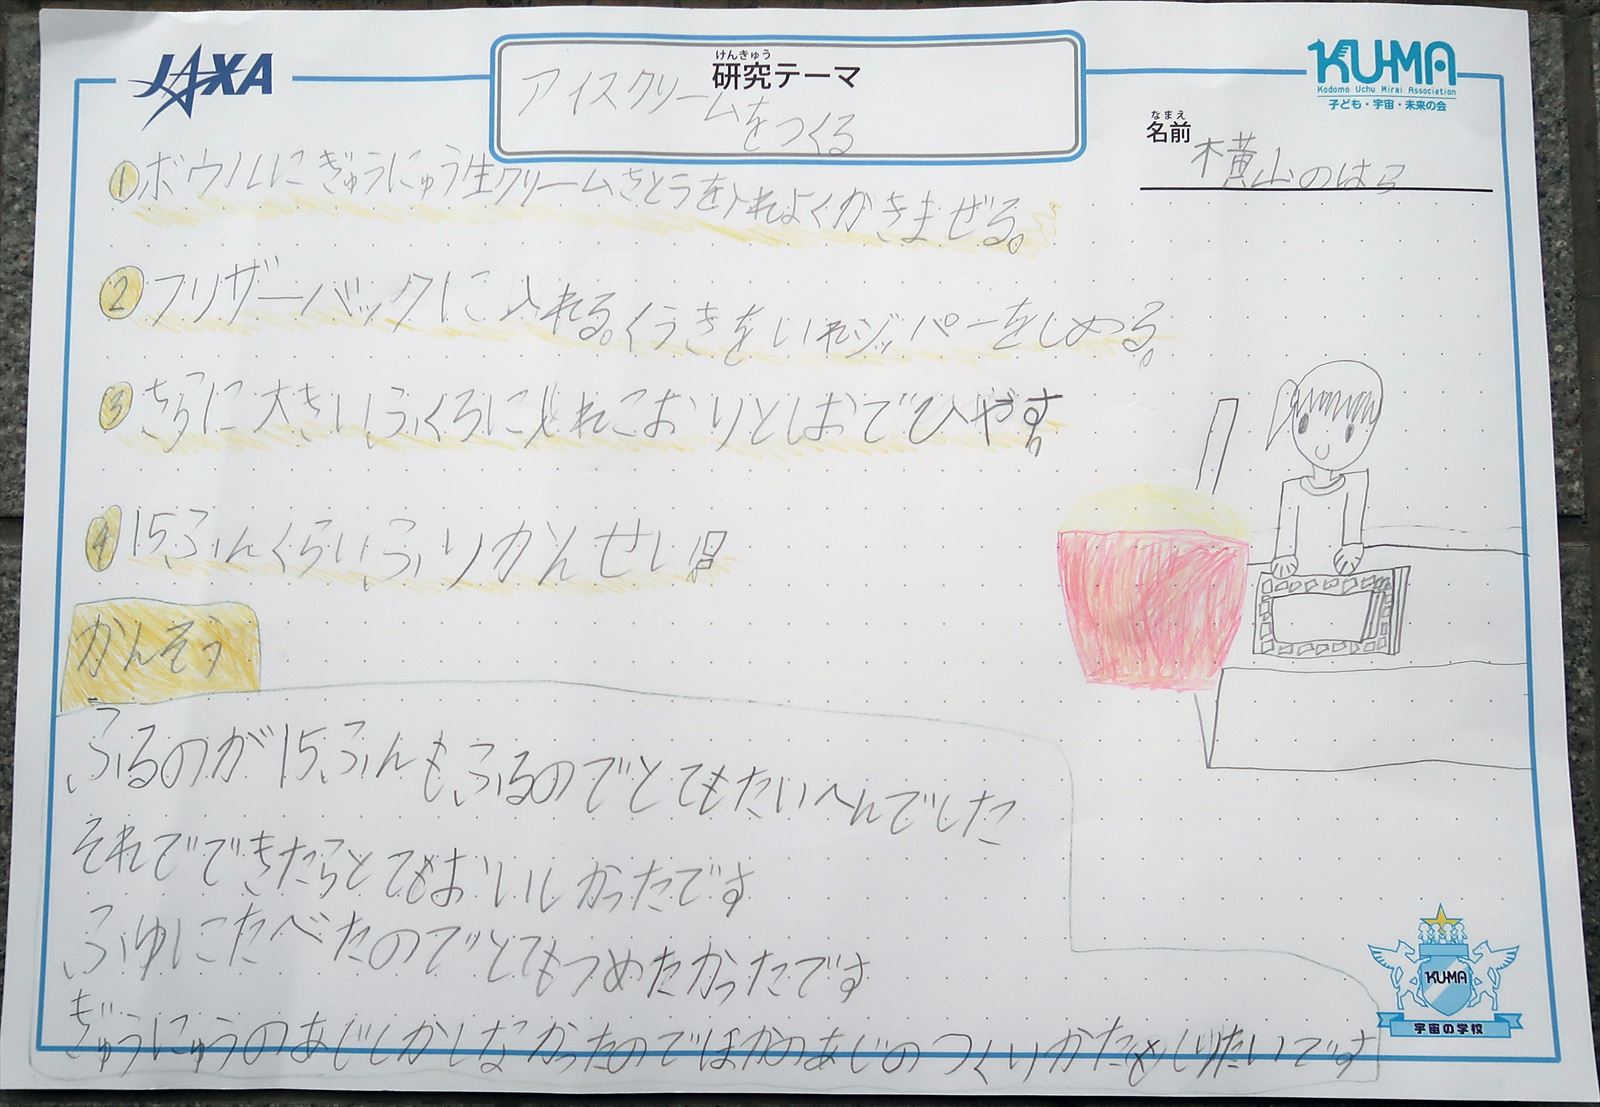 JAXA
けんきゅう
研究テーマ
アイスクリームを
つくる
KU-MA
Kodomo Uchu Mirai Association
子ども・宇宙・未来の会
なまえ
名前
横山のはら
① ボウルにぎゅうにゅう生クリームさとうを入れよくかきまぜる。
② フリザーバックに入れる。くうきをいれジッパーをしめる。
③ さらに大きいふくろに入れこおりとしおでひやす。
④ 15ふんくらいふりかんせい!!
かんそう
ふるのが15ふんもふるのでとてもたいへんでした
それでできたらとてもおいしかったです
ふゆにたべたのでとてもつめたかったです
ぎゅうにゅうのあじしかしなかったのでほかのあじのつくりかたもしりたいです
KU-MA
宇宙の学校